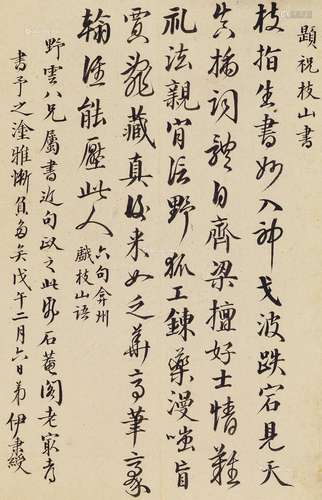 題祝枝山書
枝指生書妙入神戈波跌宕見天
真摛詞體自齊梁擅好士情難
礼法親肯信野狐工鍊藥漫嗤盲
賈藏真後來如乏華亭筆豪
翰誰能壓此人
六句弇州
戲枝山語
野雲八兄屬書近句政之此石菴閣老最喜
書予之塗雅慚負多矣戊午二月六日弟伊秉綬